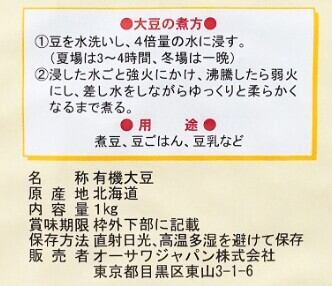 ●大豆の煮方●
①豆を水洗いし、4倍量の水に浸す。
(夏場は3〜4時間、冬場は一晩)
②浸した水ごと強火にかけ、沸騰したら弱火
にし、差し水をしながらゆっくりと柔らかく
なるまで煮る。
●用途●
煮豆、豆ごはん、豆乳など
名称 有機大豆
原産地 北海道
内容量 1kg
賞味期限 枠外下部に記載
保存方法 直射日光、高温多湿を避けて保存
販売者 オーサワジャパン株式会社
東京都目黒区東山3-1-6